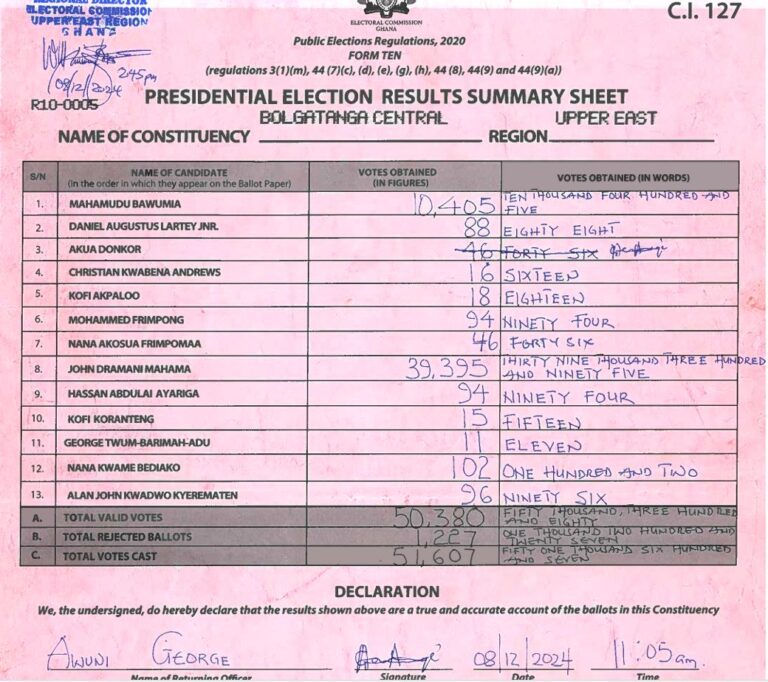 REGIONAL DIRECTOR
ELECTORAL COMMISSION
UPPER EAST REGION
GHANA
08/12/2024 2:45pm
R10-0005
ELECTORAL COMMISSION
GHANA
C.I. 127
Public Elections Regulations, 2020
FORM TEN
(regulations 3(1)(m), 44 (7)(c), (d), (e), (g), (h), 44 (8), 44(9) and 44(9)(a))
PRESIDENTIAL ELECTION RESULTS SUMMARY SHEET
BOLGATANGA CENTRAL UPPER EAST
NAME OF CONSTITUENCY REGION
S/N NAME OF CANDIDATE (in the order in which they appear on the Ballot Paper) VOTES OBTAINED (IN FIGURES) VOTES OBTAINED (IN WORDS)
1. MAHAMUDU BAWUMIA 10,405 TEN THOUSAND FOUR HUNDRED AND FIVE
2. DANIEL AUGUSTUS LARTEY JNR. 88 EIGHTY EIGHT
3. AKUA DONKOR 46 FORTY SIX
4. CHRISTIAN KWABENA ANDREWS 16 SIXTEEN
5. KOFI AKPALOO 18 EIGHTEEN
6. MOHAMMED FRIMPONG 94 NINETY FOUR
7. NANA AKOSUA FRIMPOMAA 46 FORTY SIX
8. JOHN DRAMANI MAHAMA 39,395 THIRTY NINE THOUSAND THREE HUNDRED AND NINETY FIVE
9. HASSAN ABDULAI AYARIGA 94 NINETY FOUR
10. KOFI KORANTENG 15 FIFTEEN
11. GEORGE TWUM-BARIMAH-ADU 11 ELEVEN
12. NANA KWAME BEDIAKO 102 ONE HUNDRED AND TWO
13. ALAN JOHN KWADWO KYEREMATEN 96 NINETY SIX
A. TOTAL VALID VOTES 50,380 FIFTY THOUSAND, THREE HUNDRED AND EIGHTY
B. TOTAL REJECTED BALLOTS 1,227 ONE THOUSAND TWO HUNDRED AND TWENTY SEVEN
C. TOTAL VOTES CAST 51,607 FIFTY ONE THOUSAND SIX HUNDRED AND SEVEN
DECLARATION
We, the undersigned, do hereby declare that the results shown above are a true and accurate account of the ballots in this Constituency
AWUNI GEORGE 08/12/2024 11:05am
Name of Returning Officer Signature Date Time